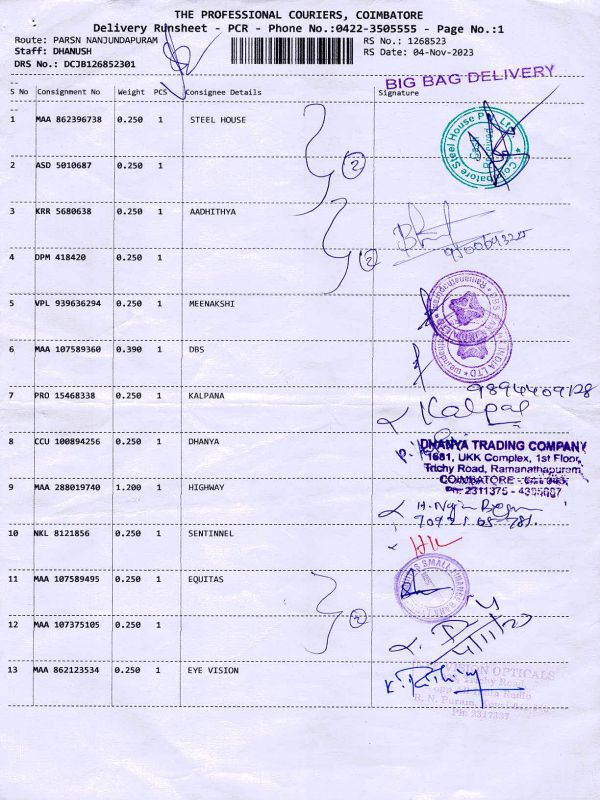 THE PROFESSIONAL COURIERS, COIMBATORE
Delivery Runsheet - PCR - Phone No.:0422-3505555 - Page No.:1
Route: PARSN NANJUNDAPURAM
RS No.: 1268523
Staff: DHANUSH
RS Date: 04-Nov-2023
DRS No.: DCJB126852301
BIG BAG DELIVERY
S No Consignment No Weight PCS Consignee Details Signature
1 MAA 862396738 0.250 1 STEEL HOUSE
Coimbatore Steel House Pvt. Ltd.
2 ASD 5010687 0.250 1
2
3 KRR 5680638 0.250 1 AADHITHYA
4 DPM 418420 0.250 1
2
5 VPL 939636294 0.250 1 MEENAKSHI
6 MAA 107589360 0.390 1 DBS
INDIA LTD
9894409128
7 PRO 15468338 0.250 1 KALPANA
Kalpa
8 CCU 100894256 0.250 1 DHANYA
DHANYA TRADING COMPANY
1681, UKK Complex, 1st Floor,
Trichy Road, Ramanathapuram,
COIMBATORE
Ph: 2311375
9 MAA 288019740 1.200 1 HIGHWAY
10 NKL 8121856 0.250 1 SENTINNEL
11 MAA 107589495 0.250 1 EQUITAS
SMALL FINANCE BANK
12 MAA 107375105 0.250 1
2
13 MAA 862123534 0.250 1 EYE VISION
VISION OPTICALS
Trichy Road
Ph: 2317337